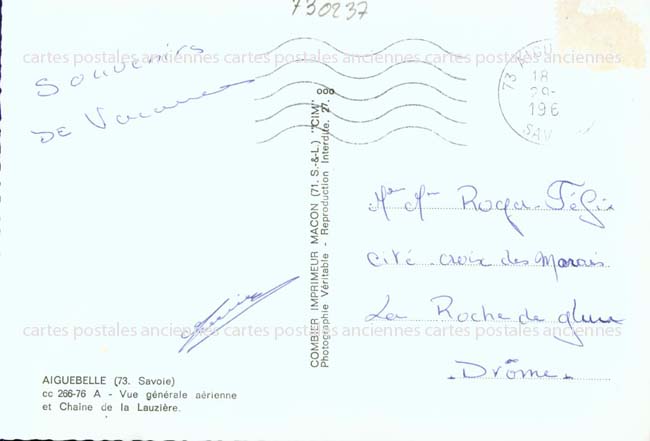 730237
cartes postales anciennes cartes postales anciennes cartes postales anciennes
Souvenirs
DE Vacances
73 AIGU
18
196
SAV
COMBIER IMPRIMEUR MACON (71. S.-&-L.) "CIM"
Photographie Véritable - Reproduction Interdite. 27. ooo
Mr Mme Roger Félix
Cité croix des Marais
La Roche de glun
Drôme
cartes postales anciennes cartes postales anciennes cartes postales anciennes
AIGUEBELLE (73. Savoie)
cc 266-76 A - Vue générale aérienne
et Chaîne de la Lauzière.